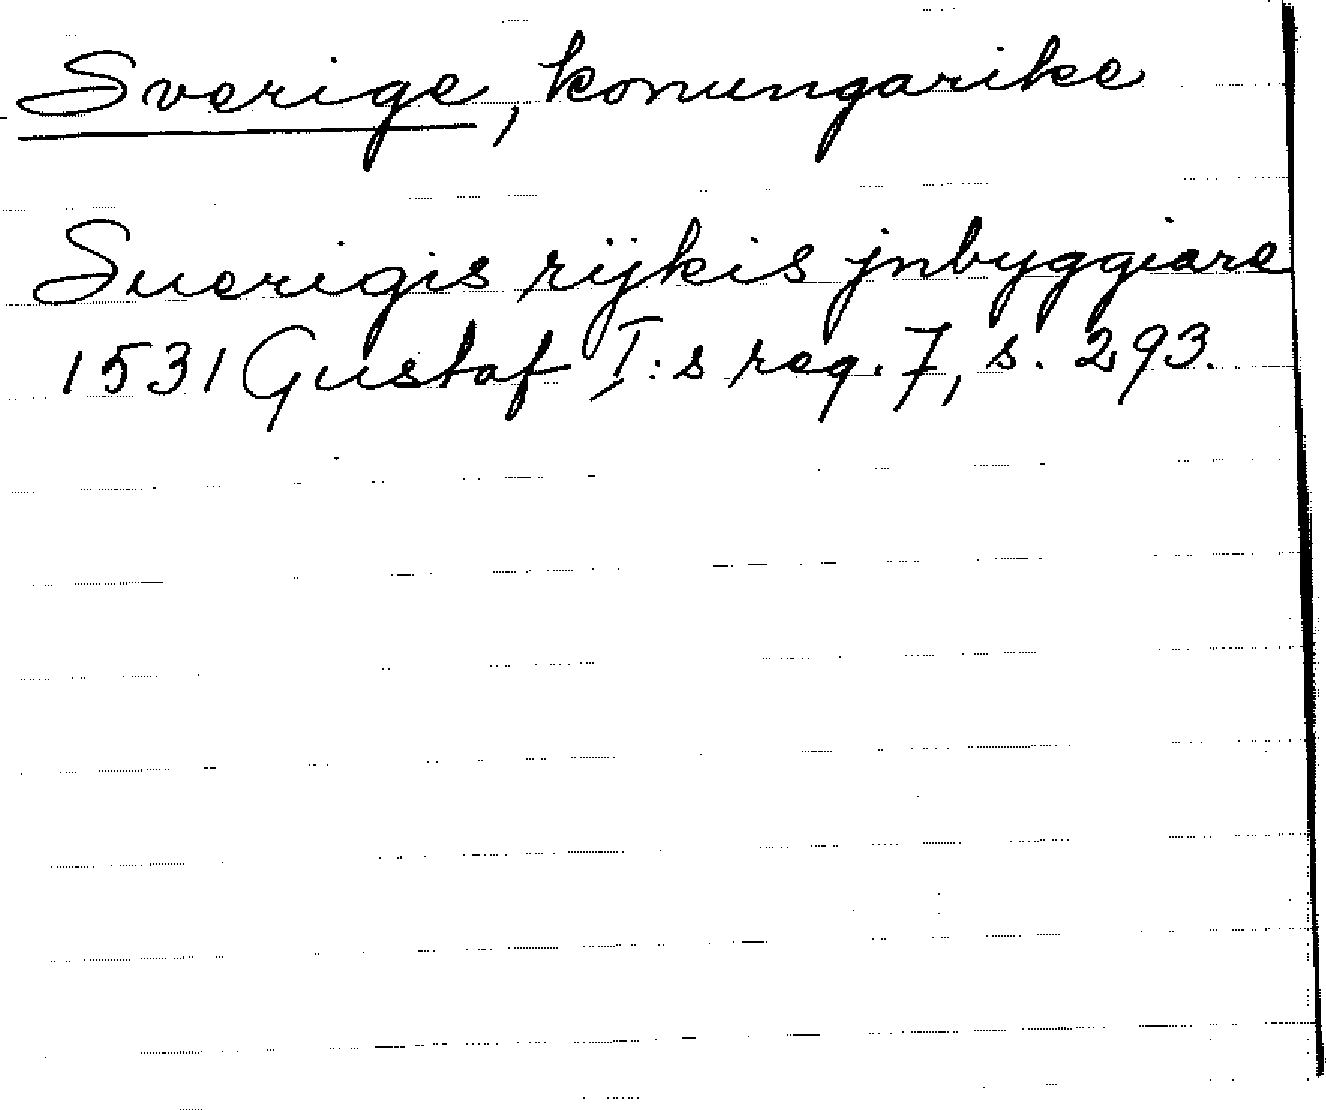 Sverige, konungarike
Suerigis rijkis jnbyggiare
1531 Gustaf I:s reg. 7, s. 293.